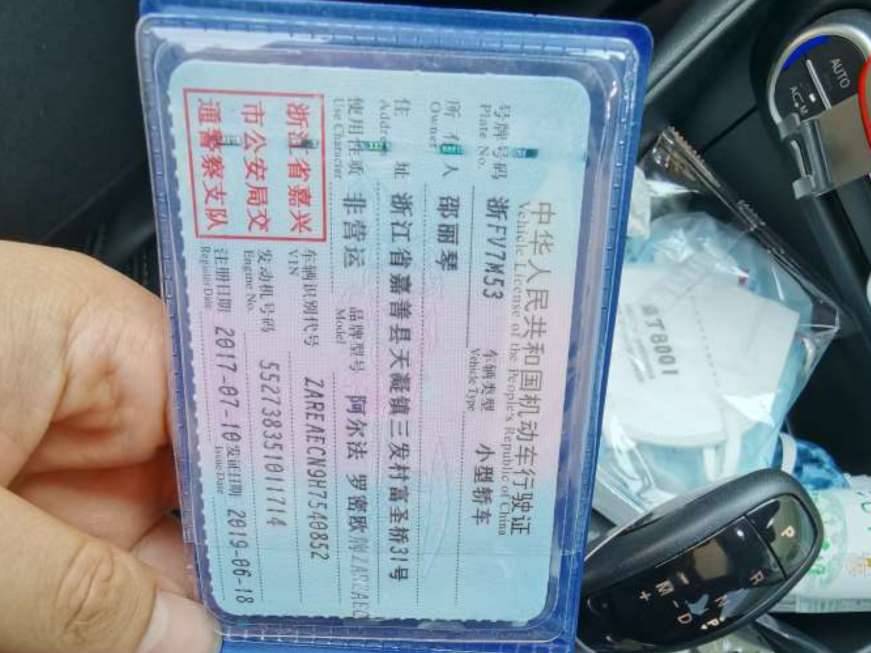 中华人民共和国机动车行驶证
Vehicle License of the People's Republic of China
号牌号码 浙FV7M53 车辆类型 小型轿车
Plate No. Vehicle Type
所有人 邵丽琴
Owner
住址 浙江省嘉善县天凝镇三发村富圣桥31号
Address
使用性质 非营运 品牌型号 阿尔法 罗密欧牌ZAREAEC
Use Character Model
浙江省嘉兴
市公安局交
通警察支队
车辆识别代号 ZAREAECN9H7540852
VIN
发动机号码 552738351011714
Engine No.
注册日期 2017-07-10 发证日期 2019-06-18
Register Date Issue Date
AUTO
P
R
N
M - D
+